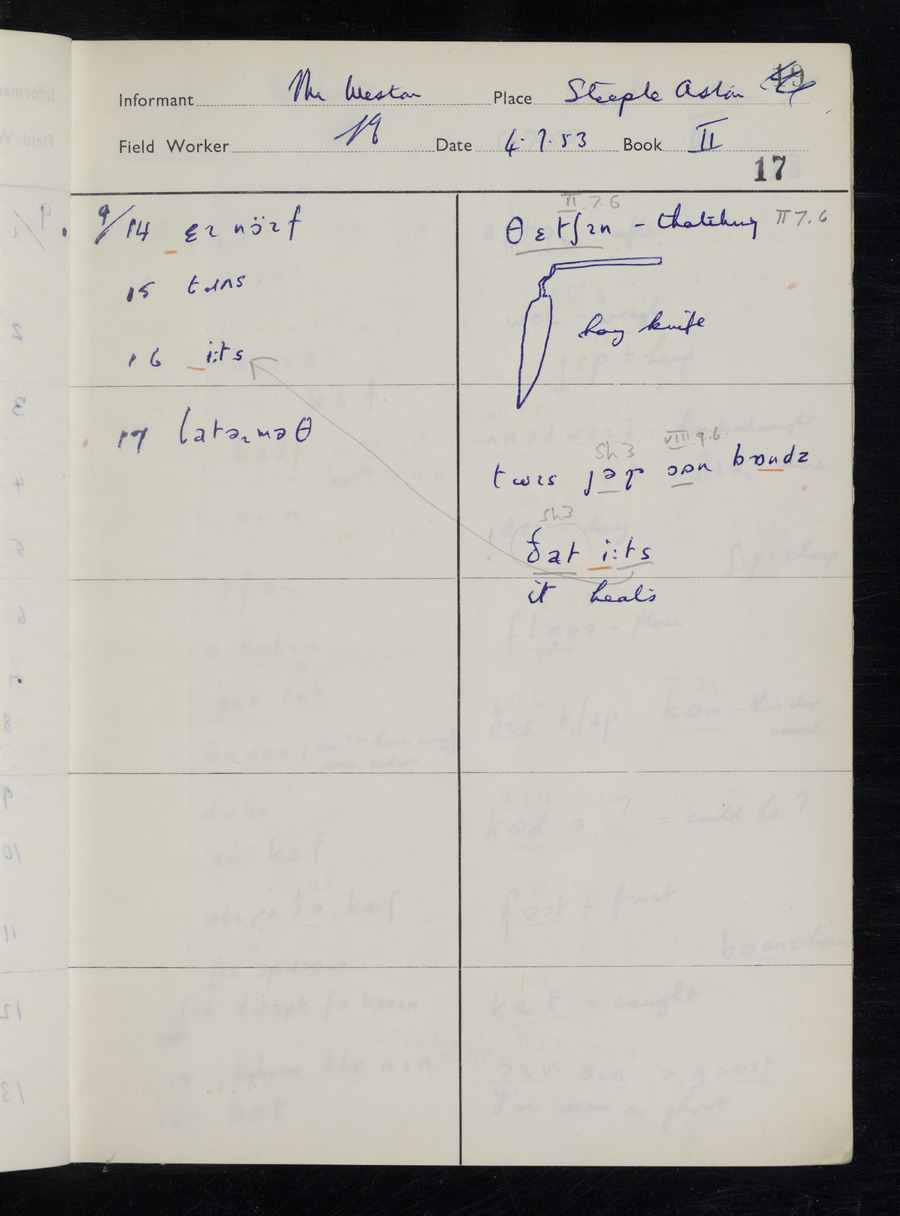 Informant Mr Weston Place Steeple Aston
Field Worker Date 4.7.53 Book II
17
9/14 ɛɪ nɔ̈ɪf
15 tɹɪns
16 i:ts
17 latəɪməθ
II.7.6
θɛtʃɪn - thatching II 7.6
hay knife
Sh3 VIII.9.6
twɪs ɔən bɒundz
Sh3
ðat i:ts
it heats